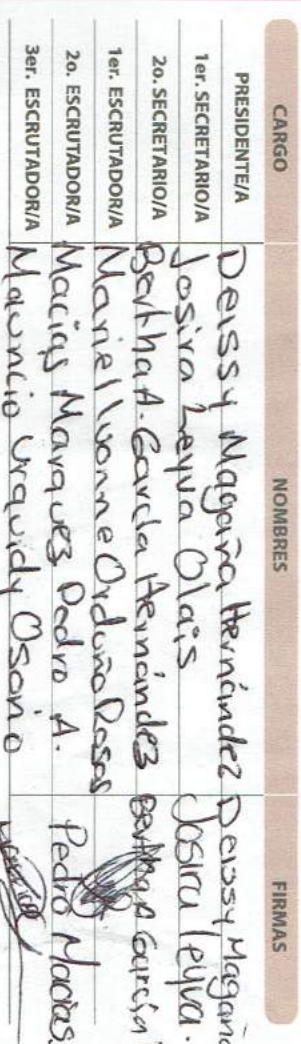 CARGO NOMBRES FIRMAS
PRESIDENTE/A Deissy Magaña Hernández Deissy Magaña
1er. SECRETARIO/A Josira Leyva Olais Josira leyva.
2o. SECRETARIO/A Bertha A. García Hernández Bertha A García
1er. ESCRUTADOR/A Mariel Ivonne Orduño Rosas
2o. ESCRUTADOR/A Macias Marquez Pedro A. Pedro Macias.
3er. ESCRUTADOR/A Mauricio Urquidy Osorio